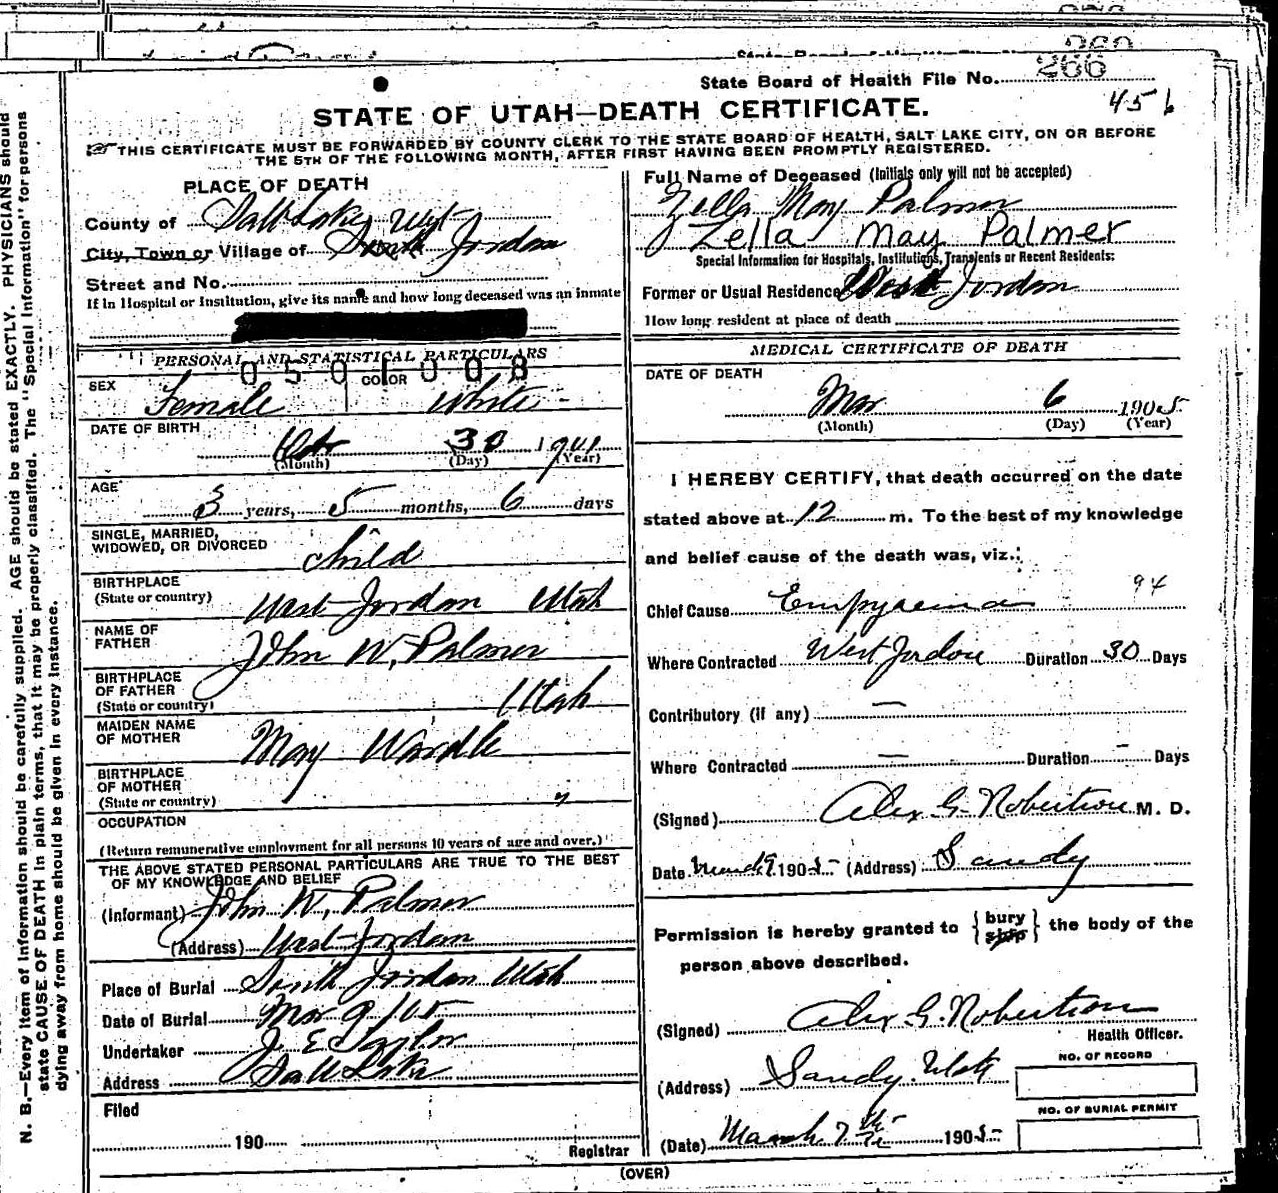 State Board of Health File No. 266
45
STATE OF UTAH—DEATH CERTIFICATE.
THIS CERTIFICATE MUST BE FORWARDED BY COUNTY CLERK TO THE STATE BOARD OF HEALTH, SALT LAKE CITY, ON OR BEFORE
THE 5TH OF THE FOLLOWING MONTH, AFTER FIRST HAVING BEEN PROMPTLY REGISTERED.
PLACE OF DEATH
County of Salt Lake
City, Town or Village of Jordan
Street and No.
If in Hospital or Institution, give its name and how long deceased was an inmate
PERSONAL AND STATISTICAL PARTICULARS
0501008
SEX Female COLOR White
DATE OF BIRTH 30 1901
(Month) (Day) (Year)
AGE 3 years, 5 months, 6 days
SINGLE, MARRIED,
WIDOWED, OR DIVORCED child
BIRTHPLACE
(State or country) West Jordan Utah
NAME OF
FATHER John W. Palmer
BIRTHPLACE
OF FATHER
(State or country) Utah
MAIDEN NAME
OF MOTHER May Wardle
BIRTHPLACE
OF MOTHER
(State or country) "
OCCUPATION
(Return remunerative employment for all persons 10 years of age and over.)
THE ABOVE STATED PERSONAL PARTICULARS ARE TRUE TO THE BEST
OF MY KNOWLEDGE AND BELIEF
(Informant) John W. Palmer
(Address) West Jordan
Place of Burial South Jordan Utah
Date of Burial Mar 9 / 05
Undertaker J. E. Taylor
Address Salt Lake
Filed
190
Registrar
Full Name of Deceased (Initials only will not be accepted)
Zella May Palmer
Zella May Palmer
Special Information for Hospitals, Institutions, Transients or Recent Residents:
Former or Usual Residence West Jordan
How long resident at place of death
MEDICAL CERTIFICATE OF DEATH
DATE OF DEATH
Mar 6 1905
(Month) (Day) (Year)
I HEREBY CERTIFY, that death occurred on the date
stated above at 12 m. To the best of my knowledge
and belief cause of the death was, viz.:
94
Chief Cause Empyaema
Where Contracted West Jordan Duration 30 Days
Contributory (if any) —
Where Contracted — Duration - Days
(Signed) Alex G. Robertson M. D.
Date 1905 (Address) Sandy
Permission is hereby granted to { bury ship } the body of the
person above described.
(Signed) Alex G. Robertson
Health Officer.
(Address) Sandy. Utah
NO. OF RECORD
NO. OF BURIAL PERMIT
(Date) March 7th 1905
(OVER)
N. B.—Every item of information should be carefully supplied. AGE should be stated EXACTLY. PHYSICIANS should
state CAUSE OF DEATH in plain terms, that it may be properly classified. The "Special Information" for persons
dying away from home should be given in every instance.